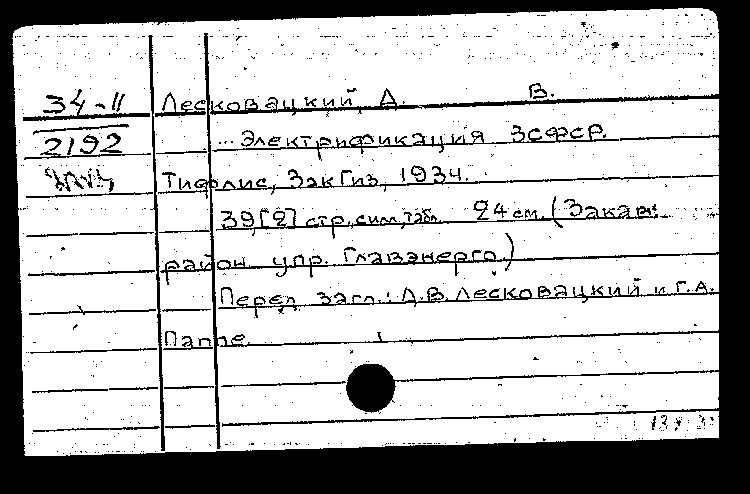 34-II Лесковацкий, А. В.
2192 ...Электрификация ЗСФСР.
Тифлис, ЗакГиз, 1934.
39,[2] стр., сим, табл. 24 см. (Закавк.
район. упр. Главэнерго.)
Перед загл.: А.В. Лесковацкий и Г.А.
Паппе.